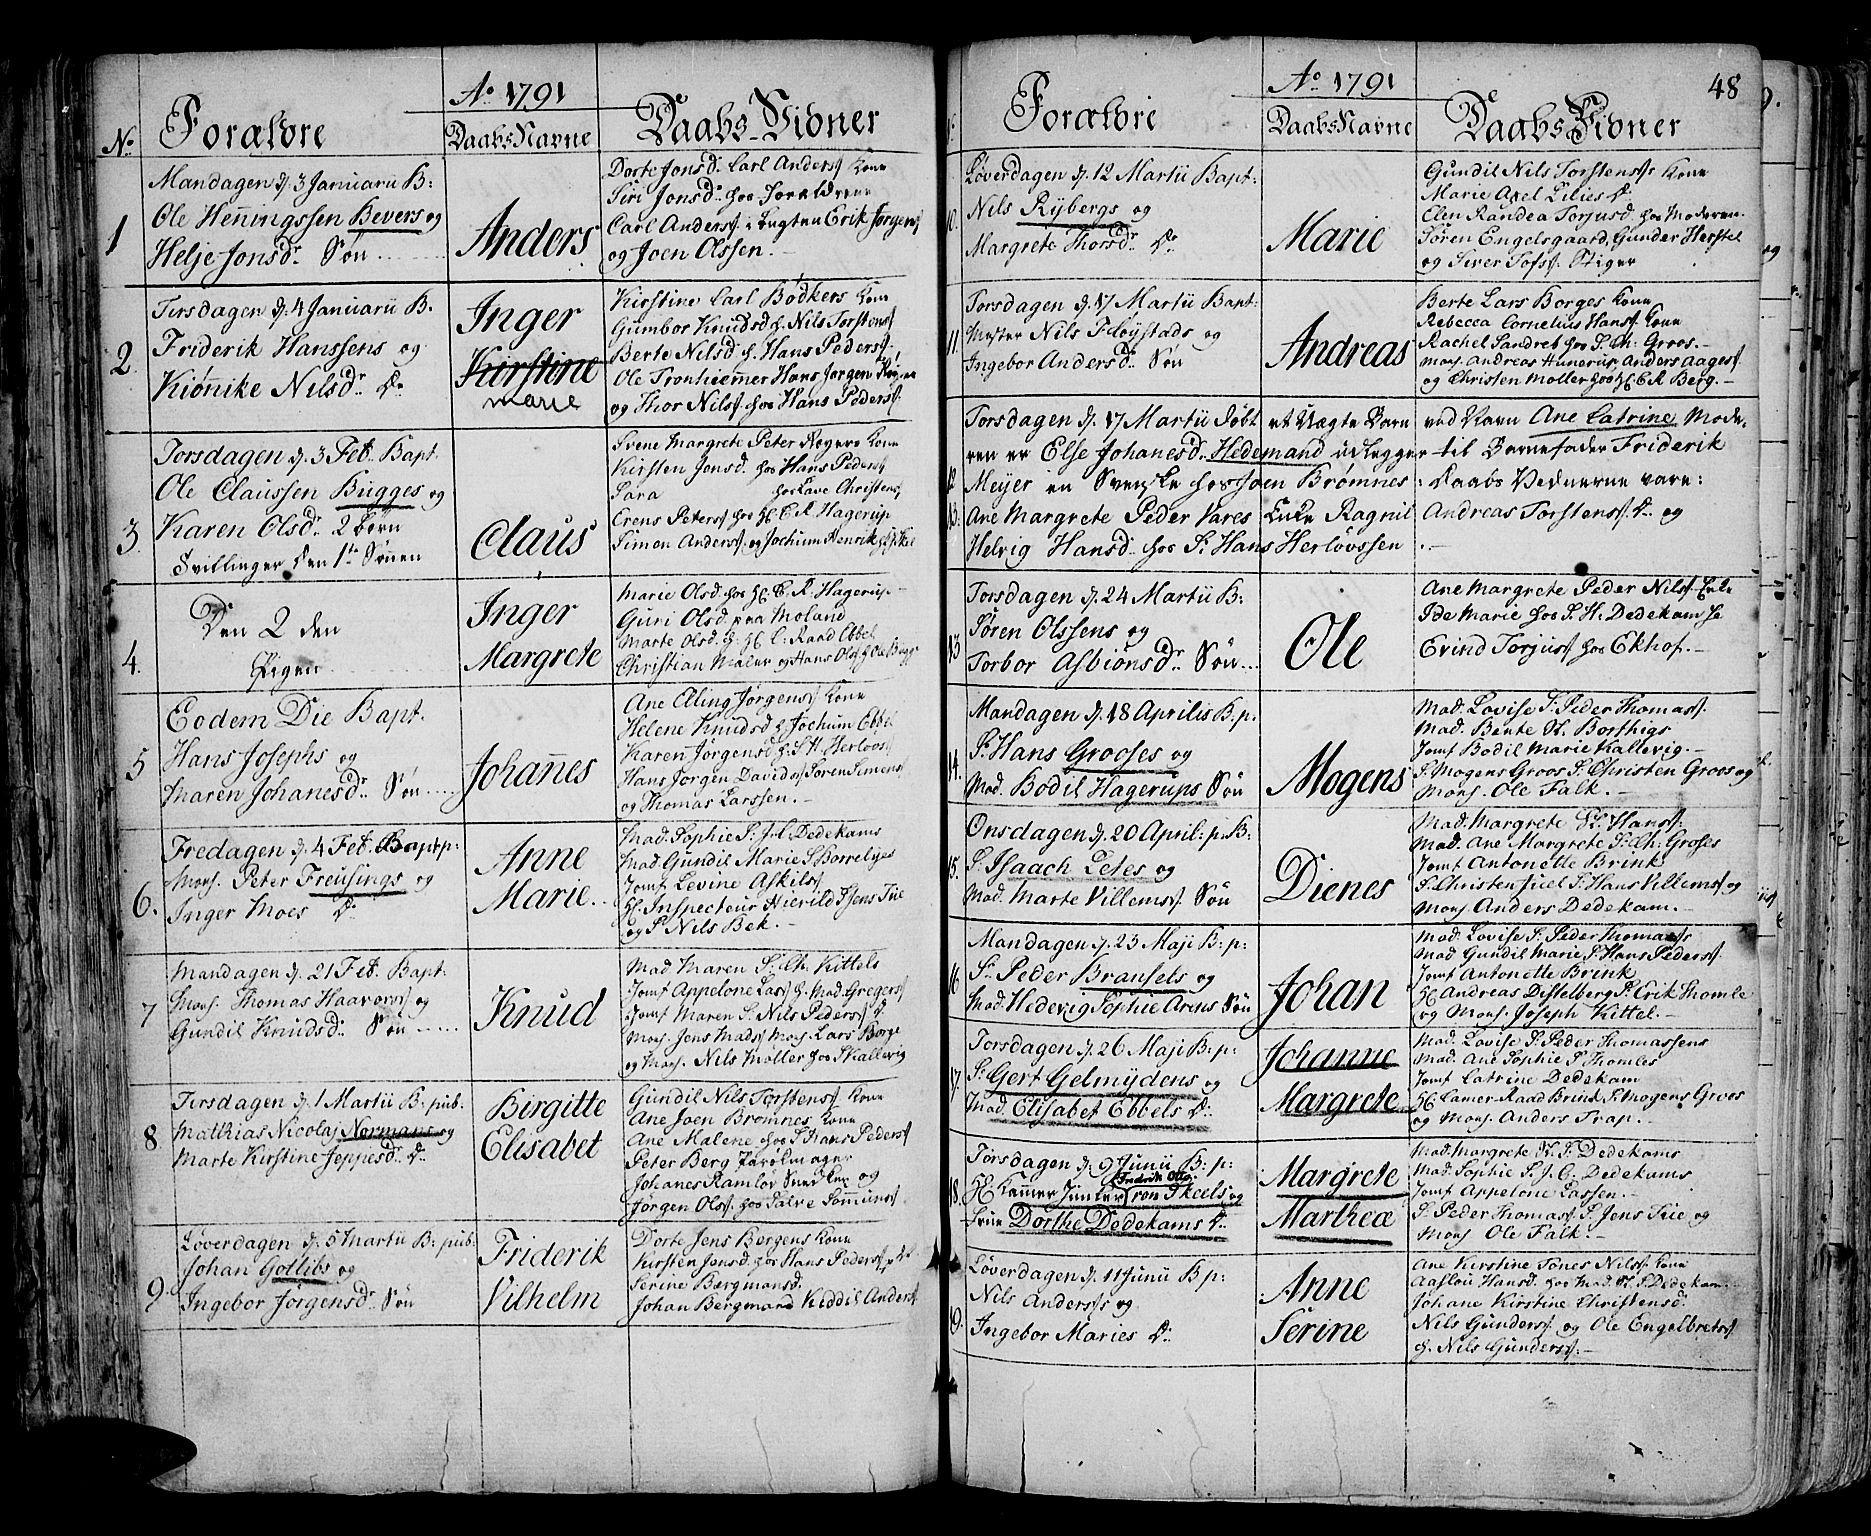 Ao 1791
No Forældre Daabs Navne Daabs-Vidner
1
Mandagen d. 3 Januarii B:
Ole Henningssen Bevers og
Helje Jonsdr. Søn
Anders
Dorte Jonsd. Carl Anderss Kone
Siri Jonsd. hos Foraldrene
Carl Anderss i Lugten Erik Jørgens
og Joen Olssen.
2
Tirsdagen d. 4 Januarii B.
Friderik Hanssens og
Kiönike Nilsdr. Dr
Inger
Kirstine
marie
Kirstine Carl Bødkers Kone
Gumbor Knudsd h. Nils Torstens
Berte Nilsd h. Hans Peders
Ole Tronhiemmer Hans Jørgen
og Thor Nilss hos Hans Peders.
3
Torsdagen d. 3 Feb. Bapt.
Ole Claussen Bugges og
Karen Olsdr. 2 børn
Tvillinger Den 1te Sønen
Claus
Svene Margrete Peter Nøgers Kone
Kirsten Jonsd. hos Hans Peders
Sara hos Lave Christens
Erens Peters hos H. C. R. Hagerup
Simon Anders og Jochum Henrik
4
Den 2 den
Pigen
Inger
Margrete
Marie Olsd. hos H. C. R. Hagerup.
Guri Olsd. paa Moland
Marte Olsd. h. H. C. Raad Ebbel
Christian Maler og Hans Ols h Ole Bugge
5
Eodem Die Bapt.
Hans Josephs og
Maren Johanesdr. Søn
Johannes
Ane Eling Jørgens Kone
Helene Knudsd h Jochum Ebbel
Karen Jørgensd h S. H. Herlovs
Hans Jørgen Davids Søren Simens
og Thomas Larssen.
6.
Fredagen d. 4 Feb. Bapt p:
Mons. Peter Freusings og
Inger Moes Dr.
Anne
Marie.
Mad. Sophie S. J. C. Dedekams
Mad. Gundil Marie S Borrelyes
Jomf Levine Askilss
H. Inspecteur Hierild S Jens Tue
og P Nils Bek.
7
Mandagen d. 21 Feb. Bapt
Mons. Thomas Haavorss og
Gundil Knudsd. Søn
Knud
Mad Maren S. Ch. Kittels
Jomf Appelone Lass h. Mad. Gregers
Jomf Maren S. Nils Peders D.
Mons. Jens Mads Mons Lars Borge
og Mons. Nils Møller hos S Kallevig
8
Tirsdagen d. 1 Martii B. pub.
Mathias Nicolaj Normans og
Marte Kirstine Jeppesd. Dr.
Birgitte
Elisabet
Gundil Nils Torstens Kone
Ane Joen Brømnes Kone
Ane Malene hos S Hans Peders
Peter Berg Parølmager
Johanes Ramlov Snedker og
Jørgen Ols. hos Salve Sommuns
9.
Løverdagen d. 5 Martii B. pub.
Johan Gotlibs og
Ingebor Jørgensdr Søn
Friderik
Vilhelm
Dorte Jens Børgens Kone
Kirsten Jonsd. hos Hans Peders
Serine Bærgmansd.
Johan Bergmand Kiddil Anders
48
Ao 1791
Forældre Daabs Navne Daabs Vidner
10.
Løverdagen d. 12 Martii Bapt:
Nils Rybergs og
Margrete Thorsdr. Dr
Marie
Gundil Nils Torstens Kone
Marie Axel Lilies D.
Elen Randea Torjusd hos Moderen
Søren Engelsgaard, Gunder Herstel
og Siver Tofs. Stiger
11.
Torsdagen d. 17 Martii Bapt:
Mester Nils Fløystads og
Ingebor Andersd. Søn
Andreas
Berte Lars Borges Kone
Rebecca Cornelius Hans Kone
Rachel Sandret hos S. Ch: Groos.
Mons. Andreas Hunerup, Anders Aages
og Christen Møller hos H. C. R Berg.
12
Torsdagen d. 17 Martii døbt et Uægte Barn ved Navn Ane Catrine, Mode-
ren er Else Johanesd. Hedemand udlegger til Barnefader Friderik
Meyer en Svenske hos Joen Brømnes: Daabs Vednerne vare:
Ane Margrete Peder Vares Enke Ragnil Andreas Torstens D. og
Helvig Hansd. hos S. Hans Herlovssen
13
Torsdagen d. 24 Martii B:
Søren Olssens og
Torbor Asbiönsdr. Søn
Ole
Ane Margrete Peder Nils Enke
Ide Marie hos S. H. Dedekams
Evind Torjus hos Ekhof.
14.
Mandagen d. 18 Aprilis B. p:
S. Hans Grooses og
Mad. Bodil Hagerups Søn
Mogens
Mad. Lovise S. Peder Thomass.
Mad. Bente H. Borthigs
Jomf Bodil Marie Kallevig.
S. Mogens Groos S. Christen Groos og
Mons. Ole Falk.
15.
Onsdagen d. 20 April. p. B:
S. Isaach Letes og
Mad. Marte Villems Søn
Dienes
Mad. Margrete H. Hans.
Mad. Ane Margrete S. Ch: Groses
Jomf Antonette Brink
S. Christen Juel S. Hans Villems og
Mons. Anders Dedekam.
16
Mandagen d. 23 Maji B: p:
Sr. Peder Bransels og
Mad. Hedevig Sophie Arens Søn
Johan
Mad. Lovise S. Peder Thomass
Mad. Gundil Marie S. Hans Peders
Jomf Antonette Brink
H Andreas Distelberg S. Erik Thomle
og Mons. Joseph Kittel.
17.
Torsdagen d. 26 Maji B: p:
Sr. Gert Gelmydens og
Mad. Elisabet Ebbels Dr.
Johanne
Margrete
Mad. Lovise S. Peder Thomassens
Mad. Ane Sophie S. Thomles
Jomf Catrine Dedekam
H Camer Raad Brind S. Mogens Groos
og Mons. Anders Trap.
18.
Torsdagen d. 9 Junii B: p:
Frederik Otto
H Kammer Junker von Skeels og
Frue Dorthe Dedekams D.
Margrete
Marthea
Mad. Margrete H. S. Dedekams
Mad. Sophie S. J. C. Dedekams
Jomf Appelone Lassen.
S. Peder Thomass S. Jens Tue og
Mons Ole Falk.
9.
Løverdagen d. 11 Junii B p:
Nils Anderss og
Ingebor Maries D.
Anne
Serine
Ane Kirstine Tønes Nils Kone
Aaslou Hansd. hos Mad. H. S. Dedekam
Johane Kirstine Christensd.
Nils Gunders og Ole Engelbrets
h. Nils Gunders.